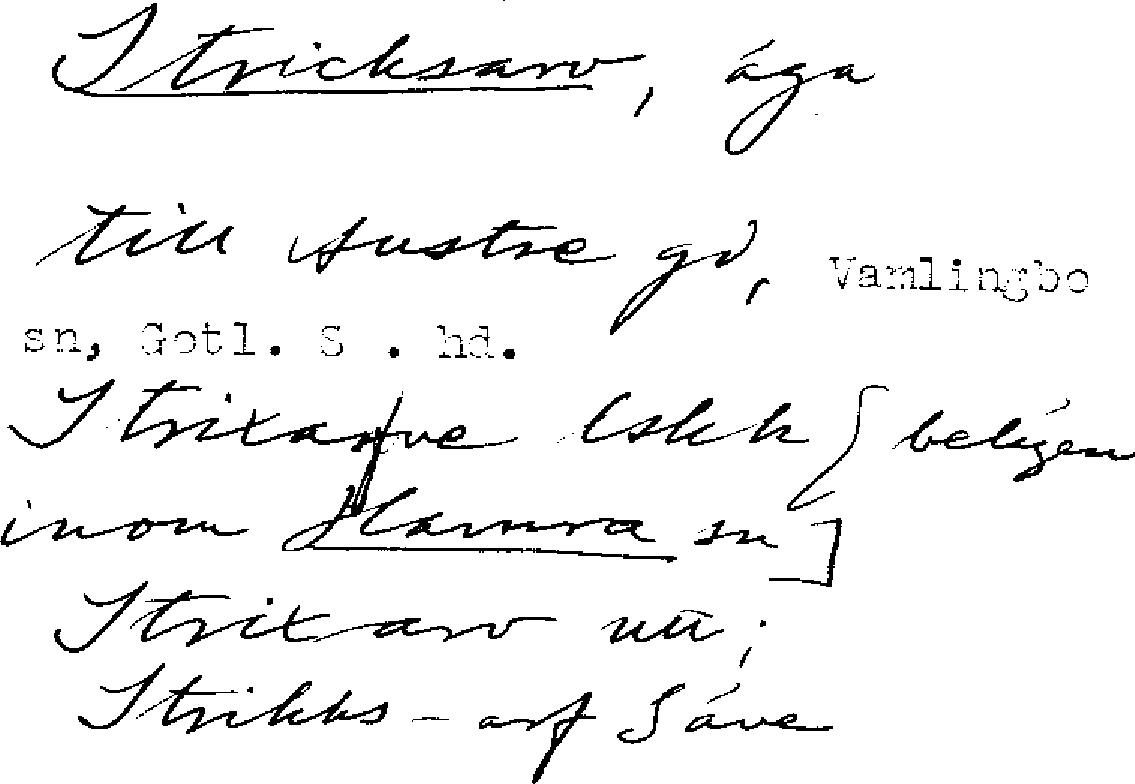 Stricksarv, äga
till Austre gd, Vamlingbo
sn, Gotl. S . hd.
Strixarve lskk [belägen
inom Hamra sn]
Strixarv uu;
Strikks-arf Säve